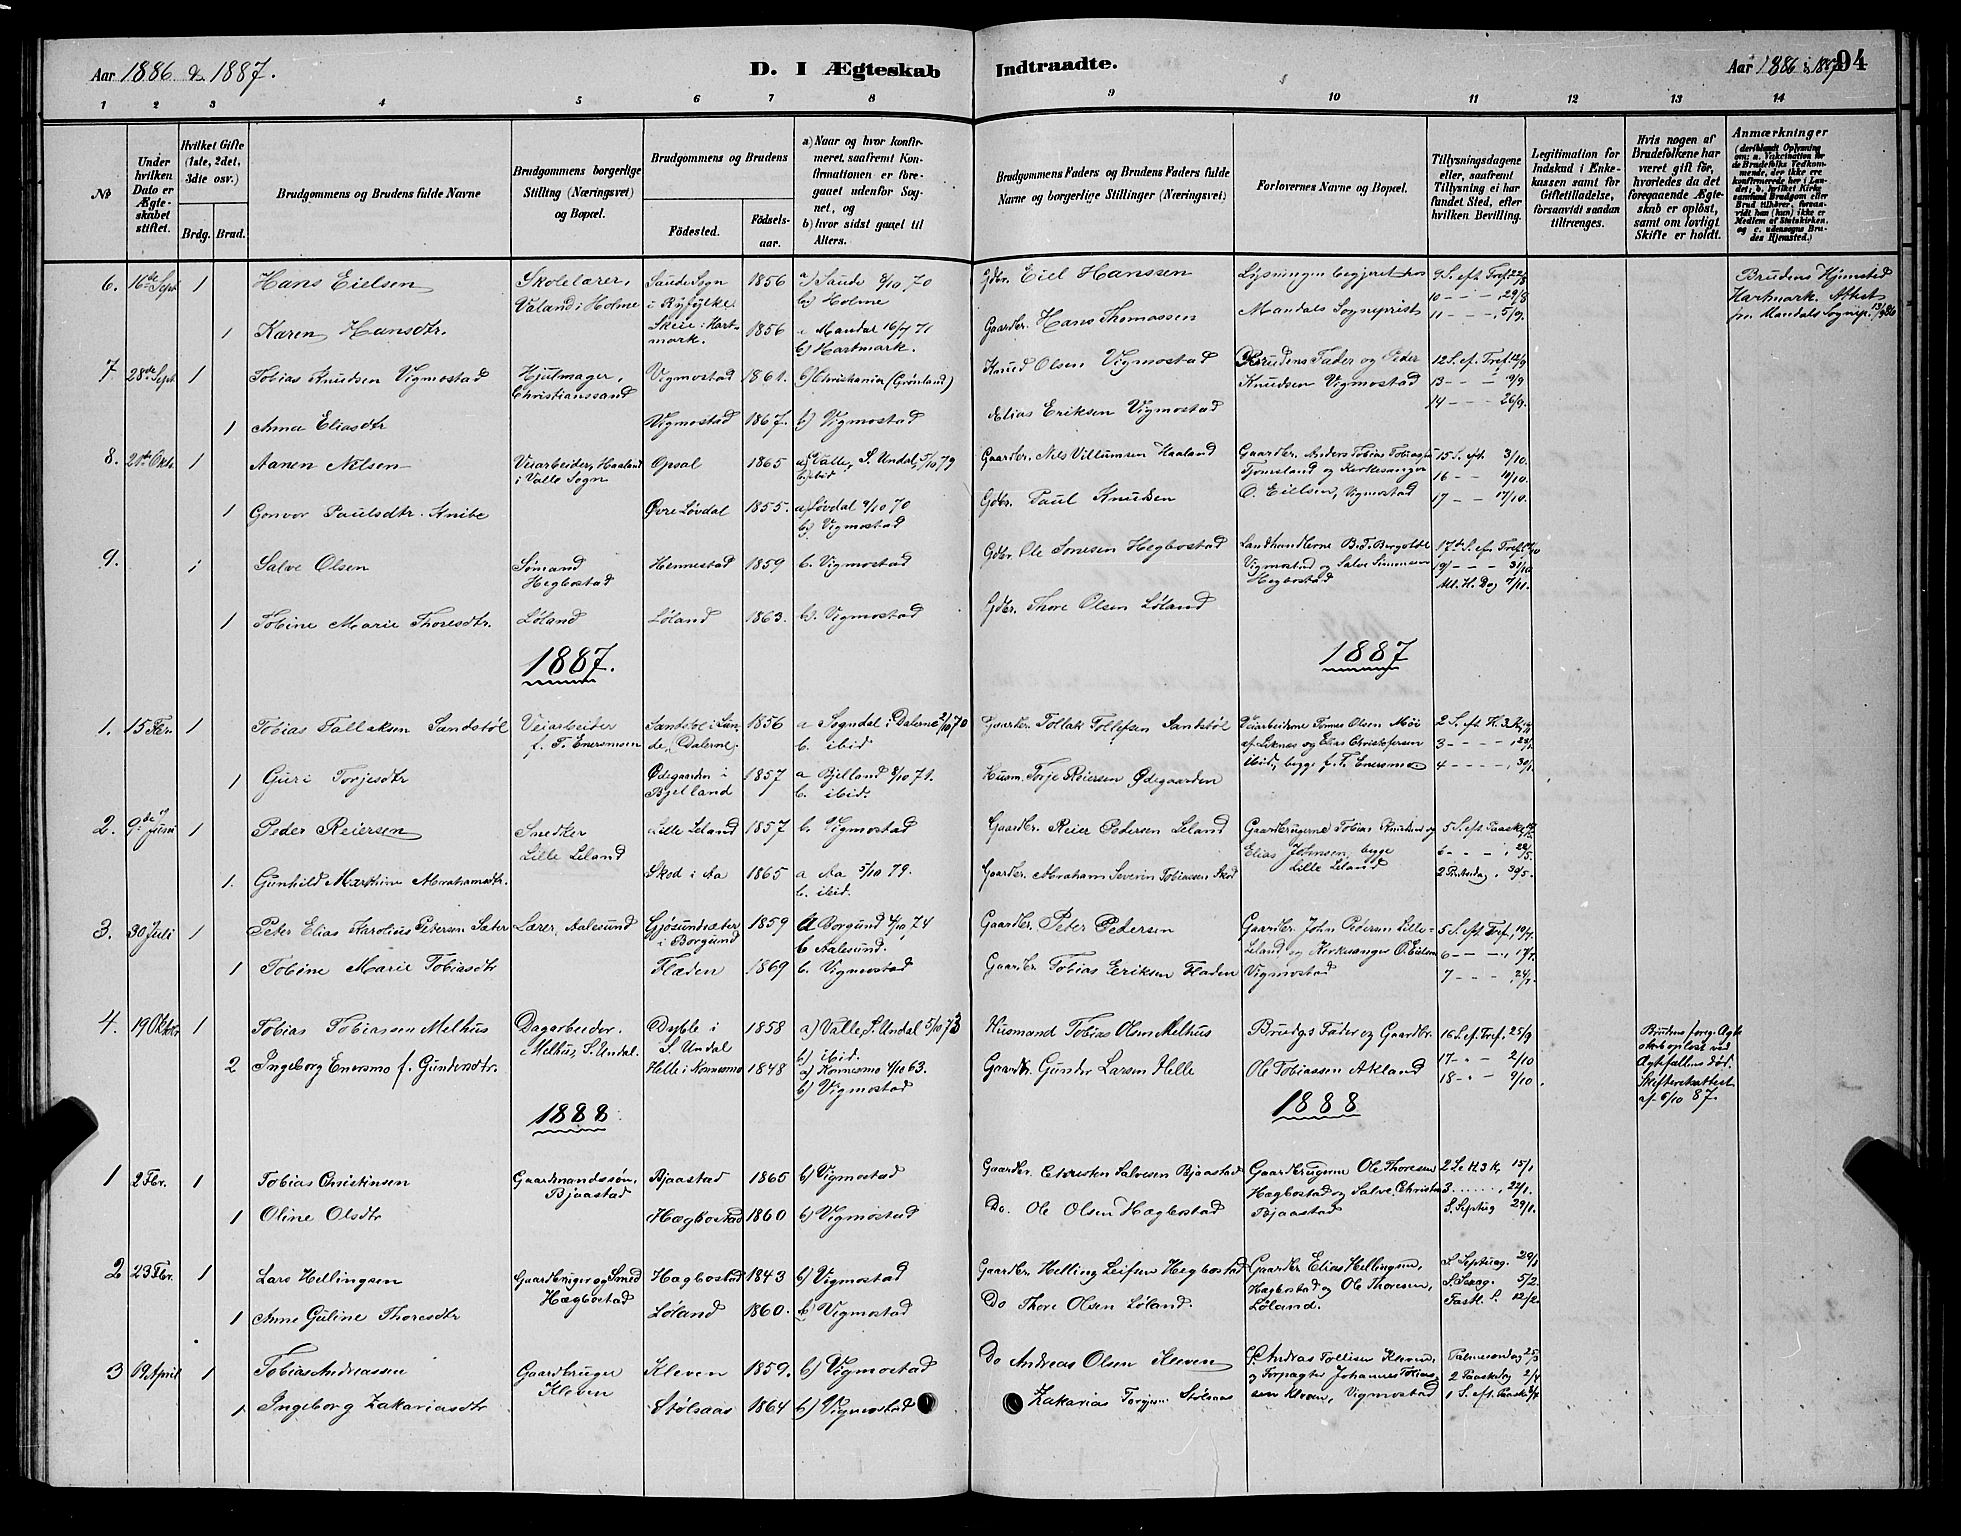 Aar 1886 & 1887.
D. I Ægteskab
Indtraadte.
Aar 1886 & 1887
94
1 2 3 4 5 6 7 8 9 10 11 12 13 14
No
Under hvilken Dato er Ægteskabet stiftet.
Hvilket Gifte (1ste, 2det, 3die osv.)
Brdg. Brud.
Brudgommens og Brudens fulde Navne
Brudgommens borgerlige Stilling (Næringsvei) og Bopæl.
Brudgommens og Brudens
Fødested.
Fødselsaar.
a) Naar og hvor konfirmeret, saafremt Konfirmationen er foregaaet udenfor Sognet, og
b) hvor sidst gaaet til Alters.
Brudgommens Faders og Brudens Faders fulde Navne og borgerlige Stillinger (Næringsvei)
Forlovernes Navne og Bopæl.
Tillysningsdagene eller, saafremt Tillysning ei har fundet Sted, efter hvilken Bevilling.
Legitimation for Indskud i Enkekassen samt for Giftetilladelse, forsaavidt saadan tiltrænges.
Hvis nogen af Brudefolkene har været gift før, hvorledes da det foregaaende Ægteskab er opløst, samt om lovligt Skifte er holdt.
Anmærkninger (deriblandt Oplysning om: a. Vakcination for de Brudefolks Vedkommende, der ikke ere konfirmerede her i Landet; b. hvilket Kirkesamfund Brudgom eller Brud tilhører, forsaavidt han (hun) ikke er Medlem af Statskirken, og c. udensogns Brudes Hjemsted.)
6. 16de Sept 1 Hans Eielsen Skolelærer, Valand i Holme Saude Sogn i Ryfylke 1856 a) Saude 8/10 70 b) Holme Gdbr. Eiel Hanssen Lysningen begjæret hos Mandals Sogneprest 9 S. eft Tref 22/8 10 - - - 29/8 11 - - - 5/9. Brudens Hjemsted Hartmark. Attest fra Mandals Sognep. 13/9 86
1 Karen Hansdtr. Skeie i Hartmark. 1856 a Mandal 16/7 71 b) Hartmark. Gaardbr. Hans Thomassen
7 28de Sept. 1 Tobias Knudsen Vigmostad Hjulmager, Christianssand Vigmostad 1861. b) Christiania (Grønland) Knud Olsen Vigmostad Brudens Fader og Peder Knudsen Vigmostad 12 S. ef. Tref 12/9 13 - - - 19/9 14 - - - 26/9.
1 Anna Eliasdtr Vigmostad 1867. b) Vigmostad Elias Eriksen Vigmostad
8. 20de Okt. 1 Aanen Nilsen Veiarbeider, Haaland i Valle Sogn Opsal 1865 a) Valle, S. Undal, 5/10 79 b) ibid Gaardbr. Nils Villumsen Haaland Gaardbr. Anders Tobias Tobiassen Tjomsland og Kirkesanger O. Eielsen, Vigmostad 15 S. eft. 3/10. 16 - - 10/10. 17 - - 17/10.
1 Gonvor Paulsdtr. Knibe Øvre Løvdal 1855. a) Løvdal 9/10 70 b) Vigmostad Gdbr. Paul Knudsen
9. 1 Salve Olsen Sømand Hegbostad Hennestad 1859 b. Vigmostad Gdbr. Ole Hegbostad Landhandlerne B. T. Bergolde Vigmostad og Salve Simonsen Hegbostad 17de S. ef. Tref. 19/ - - - 31/10 All. H. Dag 7/11.
1 Tobine Marie Thoresdtr. Løland Løland 1863. b. Vigmostad Gdbr. Thore Olsen Løland
1887. 1887
1. 15 Febr. 1 Tobias Tallaksen Sandstøl Veiarbeider f. T. Enersmoen Sandstøl i Sunde, Dalerne. 1856 a Sogndal i Dalerne 2/10 70 b. ibid Gaardbr. Tollak Tollefsen Sandstøl Veiarbeiderne Tomas Olsen Møi af Liknes og Elias Christofersen ibid, begge f. T. Enersmo 2 S. eft H. 3 K. 3 - - - - 23/1. 4 - - - - 30/1.
1 Guri Torjesdtr Ødegaarden i Bjelland 1857 a Bjelland 8/10 71. b. ibid. Husm. Torje Reiersen Ødegaarden
2. 9de Juni 1 Peder Reiersen Snedker Lille Leland Lille Leland 1857 b. Vigmostad Gaardbr. Reier Pedersen Leland Gaardbrugerne Tobias Knudsen og Elias Johnsen, begge Lille Leland 5 S. eft Paaske 6 - - - 22/5. 2 Pintsdag 30/5.
1. Gunhild Marthine Abrahamsdtr. Skod i Aa 1865 a Aa 5/10 79. b. ibid. Gaardbr. Abraham Severin Tobiassen Skod
3. 30 Juli 1 Peter Elias Karolius Petersen Sæter Lærer, Aalesund Gjøsundsæter i Borgund 1859 a Borgund 4/10 74 b Aalesund. Gaardbr. Peter Pedersen Gaardbr. John Pedersen Lille-Leland og Kirkesanger O. Eielsen Vigmostad 5 S. eft Tref. 10/7. 6 - - - 17/7. 7 - - - 24/7.
1 Tobine Marie Tobiasdtr Fladen 1869 b. Vigmostad Gaardbr. Tobias Eriksen Fladen
4. 19 Oktbr 1 Tobias Tobiassen Melhus Dagarbeider. Melhus, S. Undal. Dyble i S. Undal 1858 a) Valle, S. Undal 5/10 73 b) ibid. Husmand Tobias Olsen Melhus Brudgs Fader og Gaardbr. Ole Tobiassen Akland 16 S. ef. Tref. 25/9 17 - - 2/10 18 - - 9/10. Brudens foreg. Ægteskab opløst ved Ægtefællens død. Skifteretsattest af 6/10 87.
2 Ingeborg Enersmo f. Gundersdtr. Helle i Konnesmo 1848 a) Konnesmo 4/10 63. b) Vigmostad Gaardbr. Gunder Larsen Helle
1888. 1888
1 2 Fbr. 1 Tobias Christinsen Gaardmandssøn, Bjaastad Bjaastad 1865 b) Vigmostad Gaardbr. Christen Salvesen Bjaastad Gaardbrugerne Ole Thoresen Hægbostad og Salve Christen Bjaastad 2 S e H 3 K, 15/1 3 . . . . . . , 22/1. S. Septug 29/1.
1 Oline Olsdtr Hægbostad 1860 b) Vigmostad Do. Ole Olsen Hægbostad
2 23 Fbr. 1 Lars Hellingsen Gaardbruger og Smed Hægbostad Hægbostad 1843 b) Vigmostad Gaardbr. Helling Leifsen Hegbostad Gaardbr. Elias Hellingsen, Hægbostad og Ole Thoresen, Løland. S. Septuag. 29/1 S. Sexag. 5/2. Fastl. S. 12/2.
1 Anne Guline Thoresdtr Løland 1860. b) Vigmostad Do Thore Olsen Løland.
3 19 April 1 Tobias Andreassen Gaardbruger Kleven Kleven 1859. b) Vigmostad Do Andreas Olsen Kleven G. Andreas Tollisen Kleven, og Forpagter Johannes Tobiassen Kleven, Vigmostad Palmesøndag 25/3 2 Paaskdag 2/4 1 S. eft. Paaske 8/4
1 Ingeborg Zakariasdtr Stølsaas 1864 b) Vigmostad Zakarias Torjusen Stølsaas